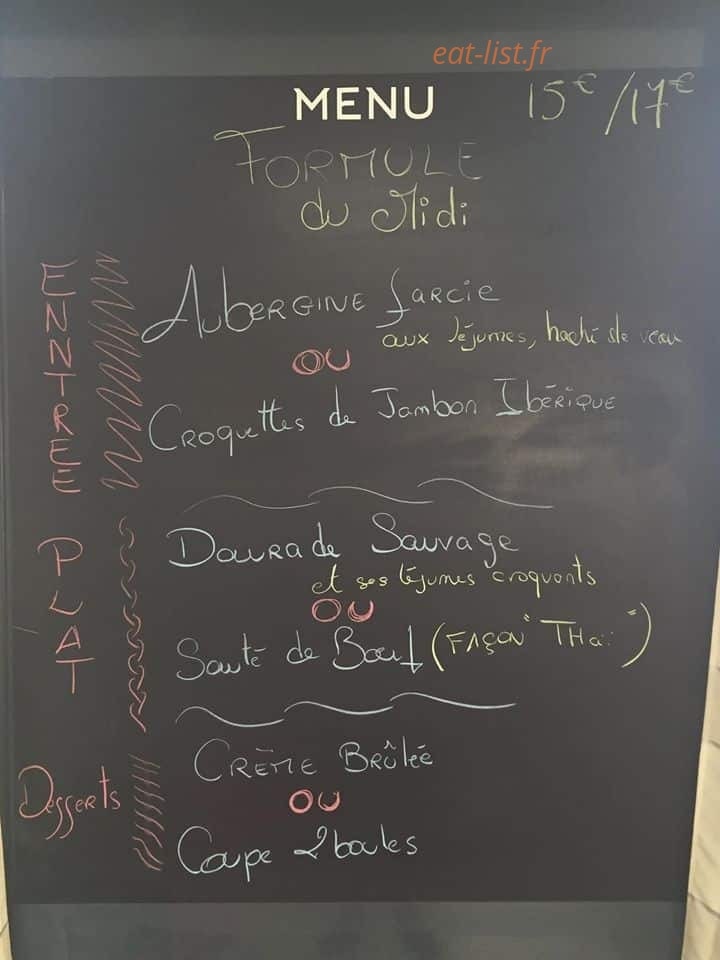 eat-list.fr
MENU 15€/17€
FORMULE
du Midi
ENNTREE
AUBERGINE farcie
aux légumes, haché de veau
OU
CROQUETTES de Jambon IBÉRIQUE
PLAT
DOURADE SAUVAGE
et ses légumes croquants
OU
Sauté de Boeuf (FAÇON "THaï")
Desserts
CRÈME BRÛLÉE
OU
Coupe 2 boules